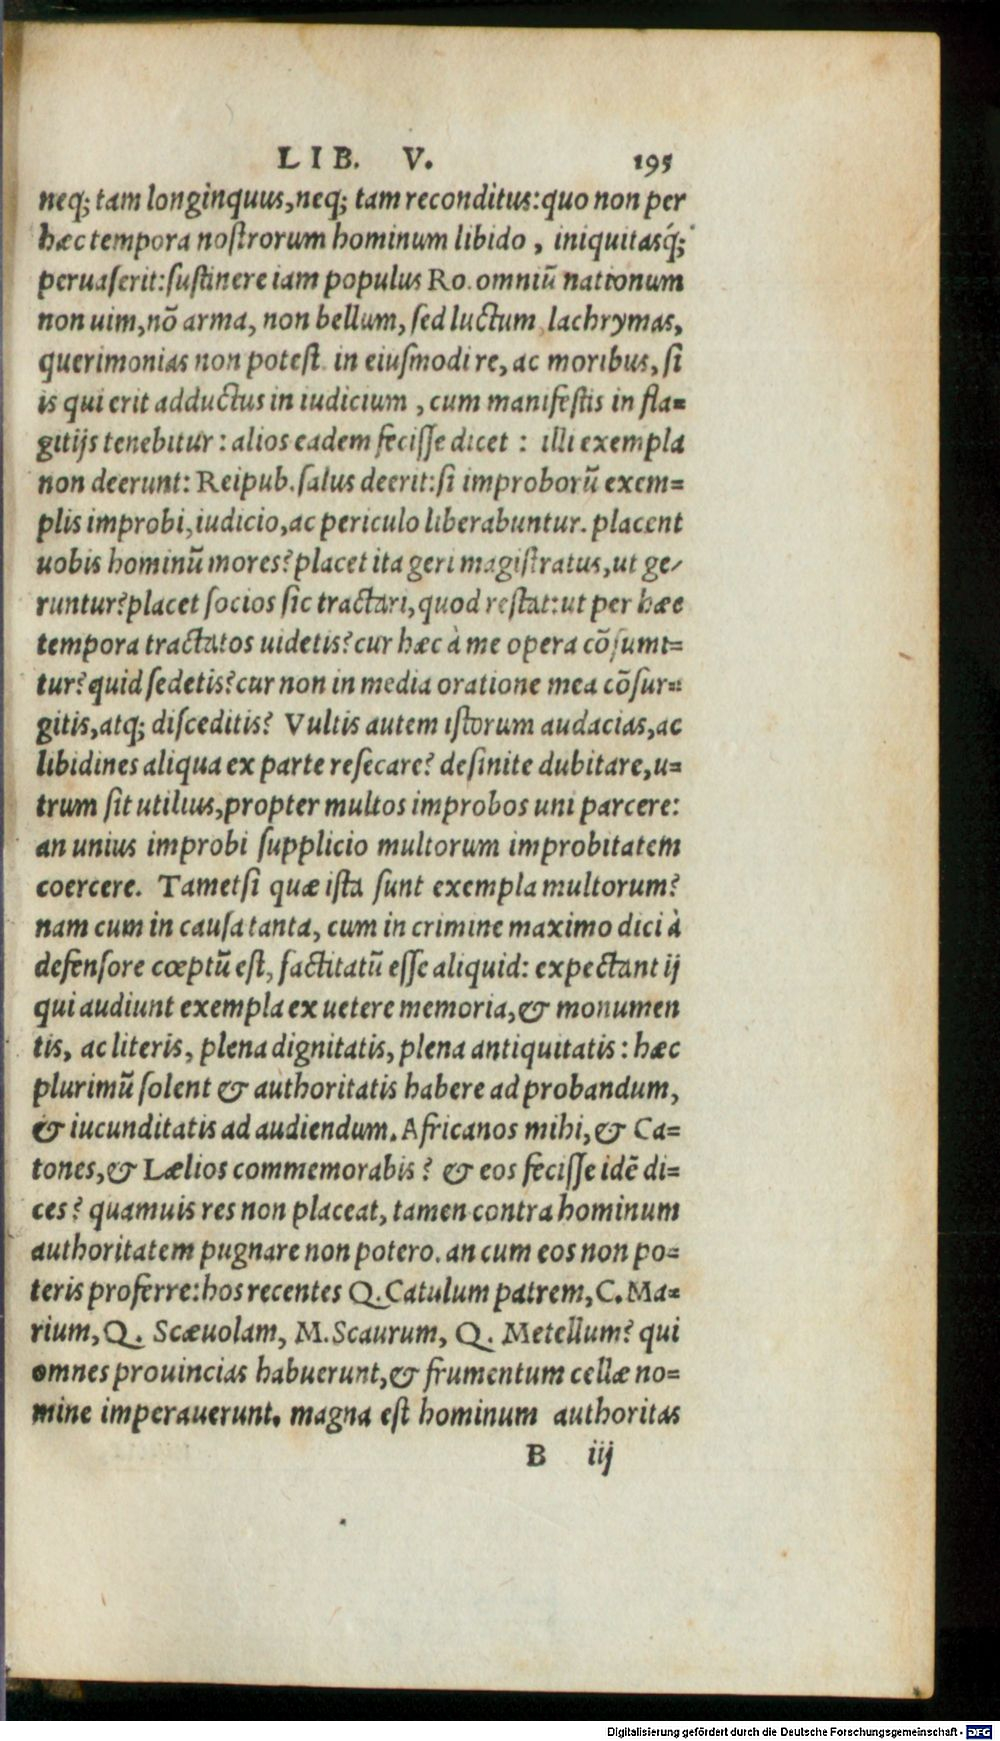 LIB. V. 195
neq; tam longinquus, neq; tam reconditus: quo non per
hæc tempora nostrorum hominum libido, iniquitasq́;
peruaserit: sustinere iam populus Ro. omniū nationum
non uim, nō arma, non bellum, sed luctum lachrymas,
querimonias non potest. in eiusmodi re, ac moribus, si
is qui erit adductus in iudicium, cum manifestis in fla=
gitijs tenebitur: alios eadem fecisse dicet: illi exempla
non deerunt: Reipub. salus deerit: si improborū exem=
plis improbi, iudicio, ac periculo liberabuntur. placent
uobis hominū mores? placet ita geri magistratus, ut ge/
runtur? placet socios sic tractari, quod restat: ut per hæc
tempora tractatos uidetis? cur hæc à me opera cōsumi=
tur? quid sedetis? cur non in media oratione mea cōsur=
gitis, atq; disceditis? Vultis autem istorum audacias, ac
libidines aliqua ex parte resecare? desinite dubitare, u=
trum sit utilius, propter multos improbos uni parcere:
an unius improbi supplicio multorum improbitatem
coercere. Tametsi quæ ista sunt exempla multorum?
nam cum in causa tanta, cum in crimine maximo dici à
defensore cœptū est, factitatū esse aliquid: expectant ij
qui audiunt exempla ex uetere memoria, & monumen
tis, ac literis, plena dignitatis, plena antiquitatis: hæc
plurimū solent & authoritatis habere ad probandum,
& iucunditatis ad audiendum. Africanos mihi, & Ca=
tones, & Lælios commemorabis? & eos fecisse idē di=
ces? quamuis res non placeat, tamen contra hominum
authoritatem pugnare non potero. an cum eos non po=
teris proferre: hos recentes Q. Catulum patrem, C. Ma=
rium, Q. Scæuolam, M. Scaurum, Q. Metellum? qui
omnes prouincias habuerunt, & frumentum cellæ no=
mine imperauerunt. magna est hominum authoritas
B iij
Digitalisierung gefördert durch die Deutsche Forschungsgemeinschaft - DFG